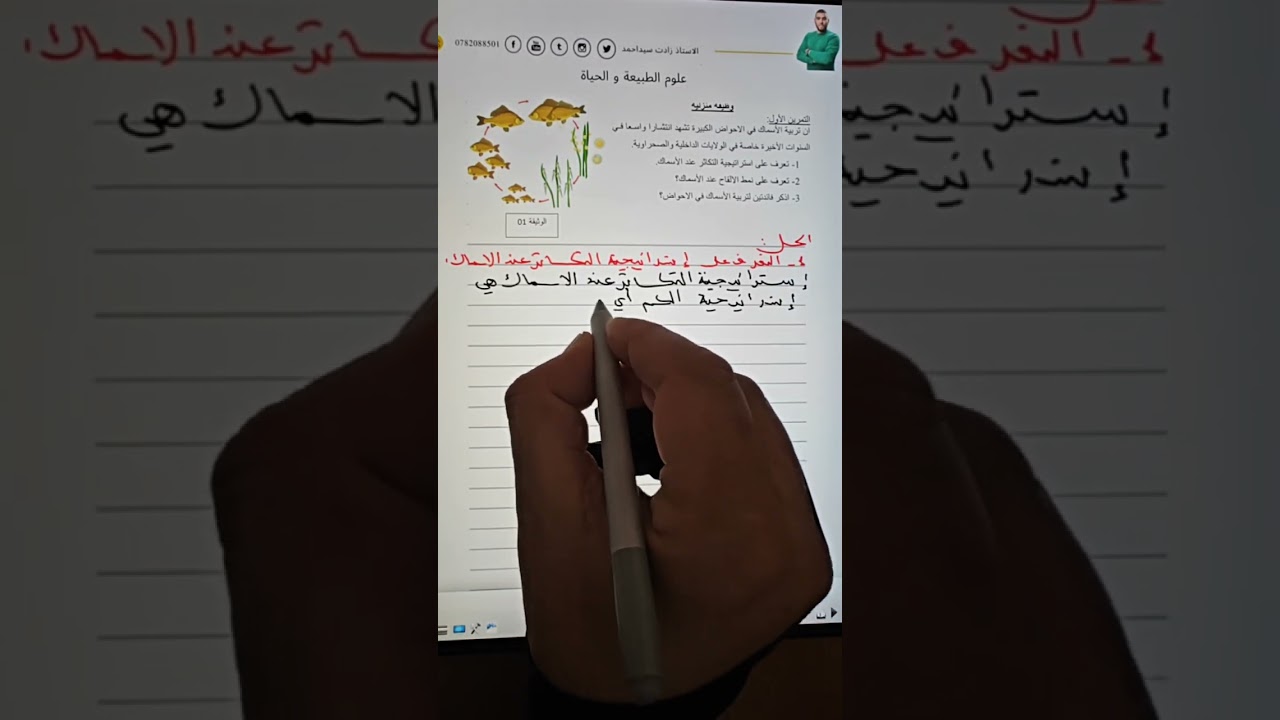 الاستاذ زادت سيداحمد
0782088501
علوم الطبيعة و الحياة
وظيفة منزلية
التمرين الأول:
ان تربية الأسماك في الاحواض الكبيرة تشهد انتشارا واسعا في
السنوات الأخيرة خاصة في الولايات الداخلية والصحراوية.
1- تعرف على استراتيجية التكاثر عند الأسماك.
2- تعرف على نمط الالقاح عند الأسماك؟
3- اذكر فائدتين لتربية الأسماك في الاحواض؟
الوثيقة 01
الحل:
1- التعرف على إستراتيجية التكاثر عند الاسماك:
إستراتيجية التكاثر عند الاسماك هي
إستراتيجية الكم أي